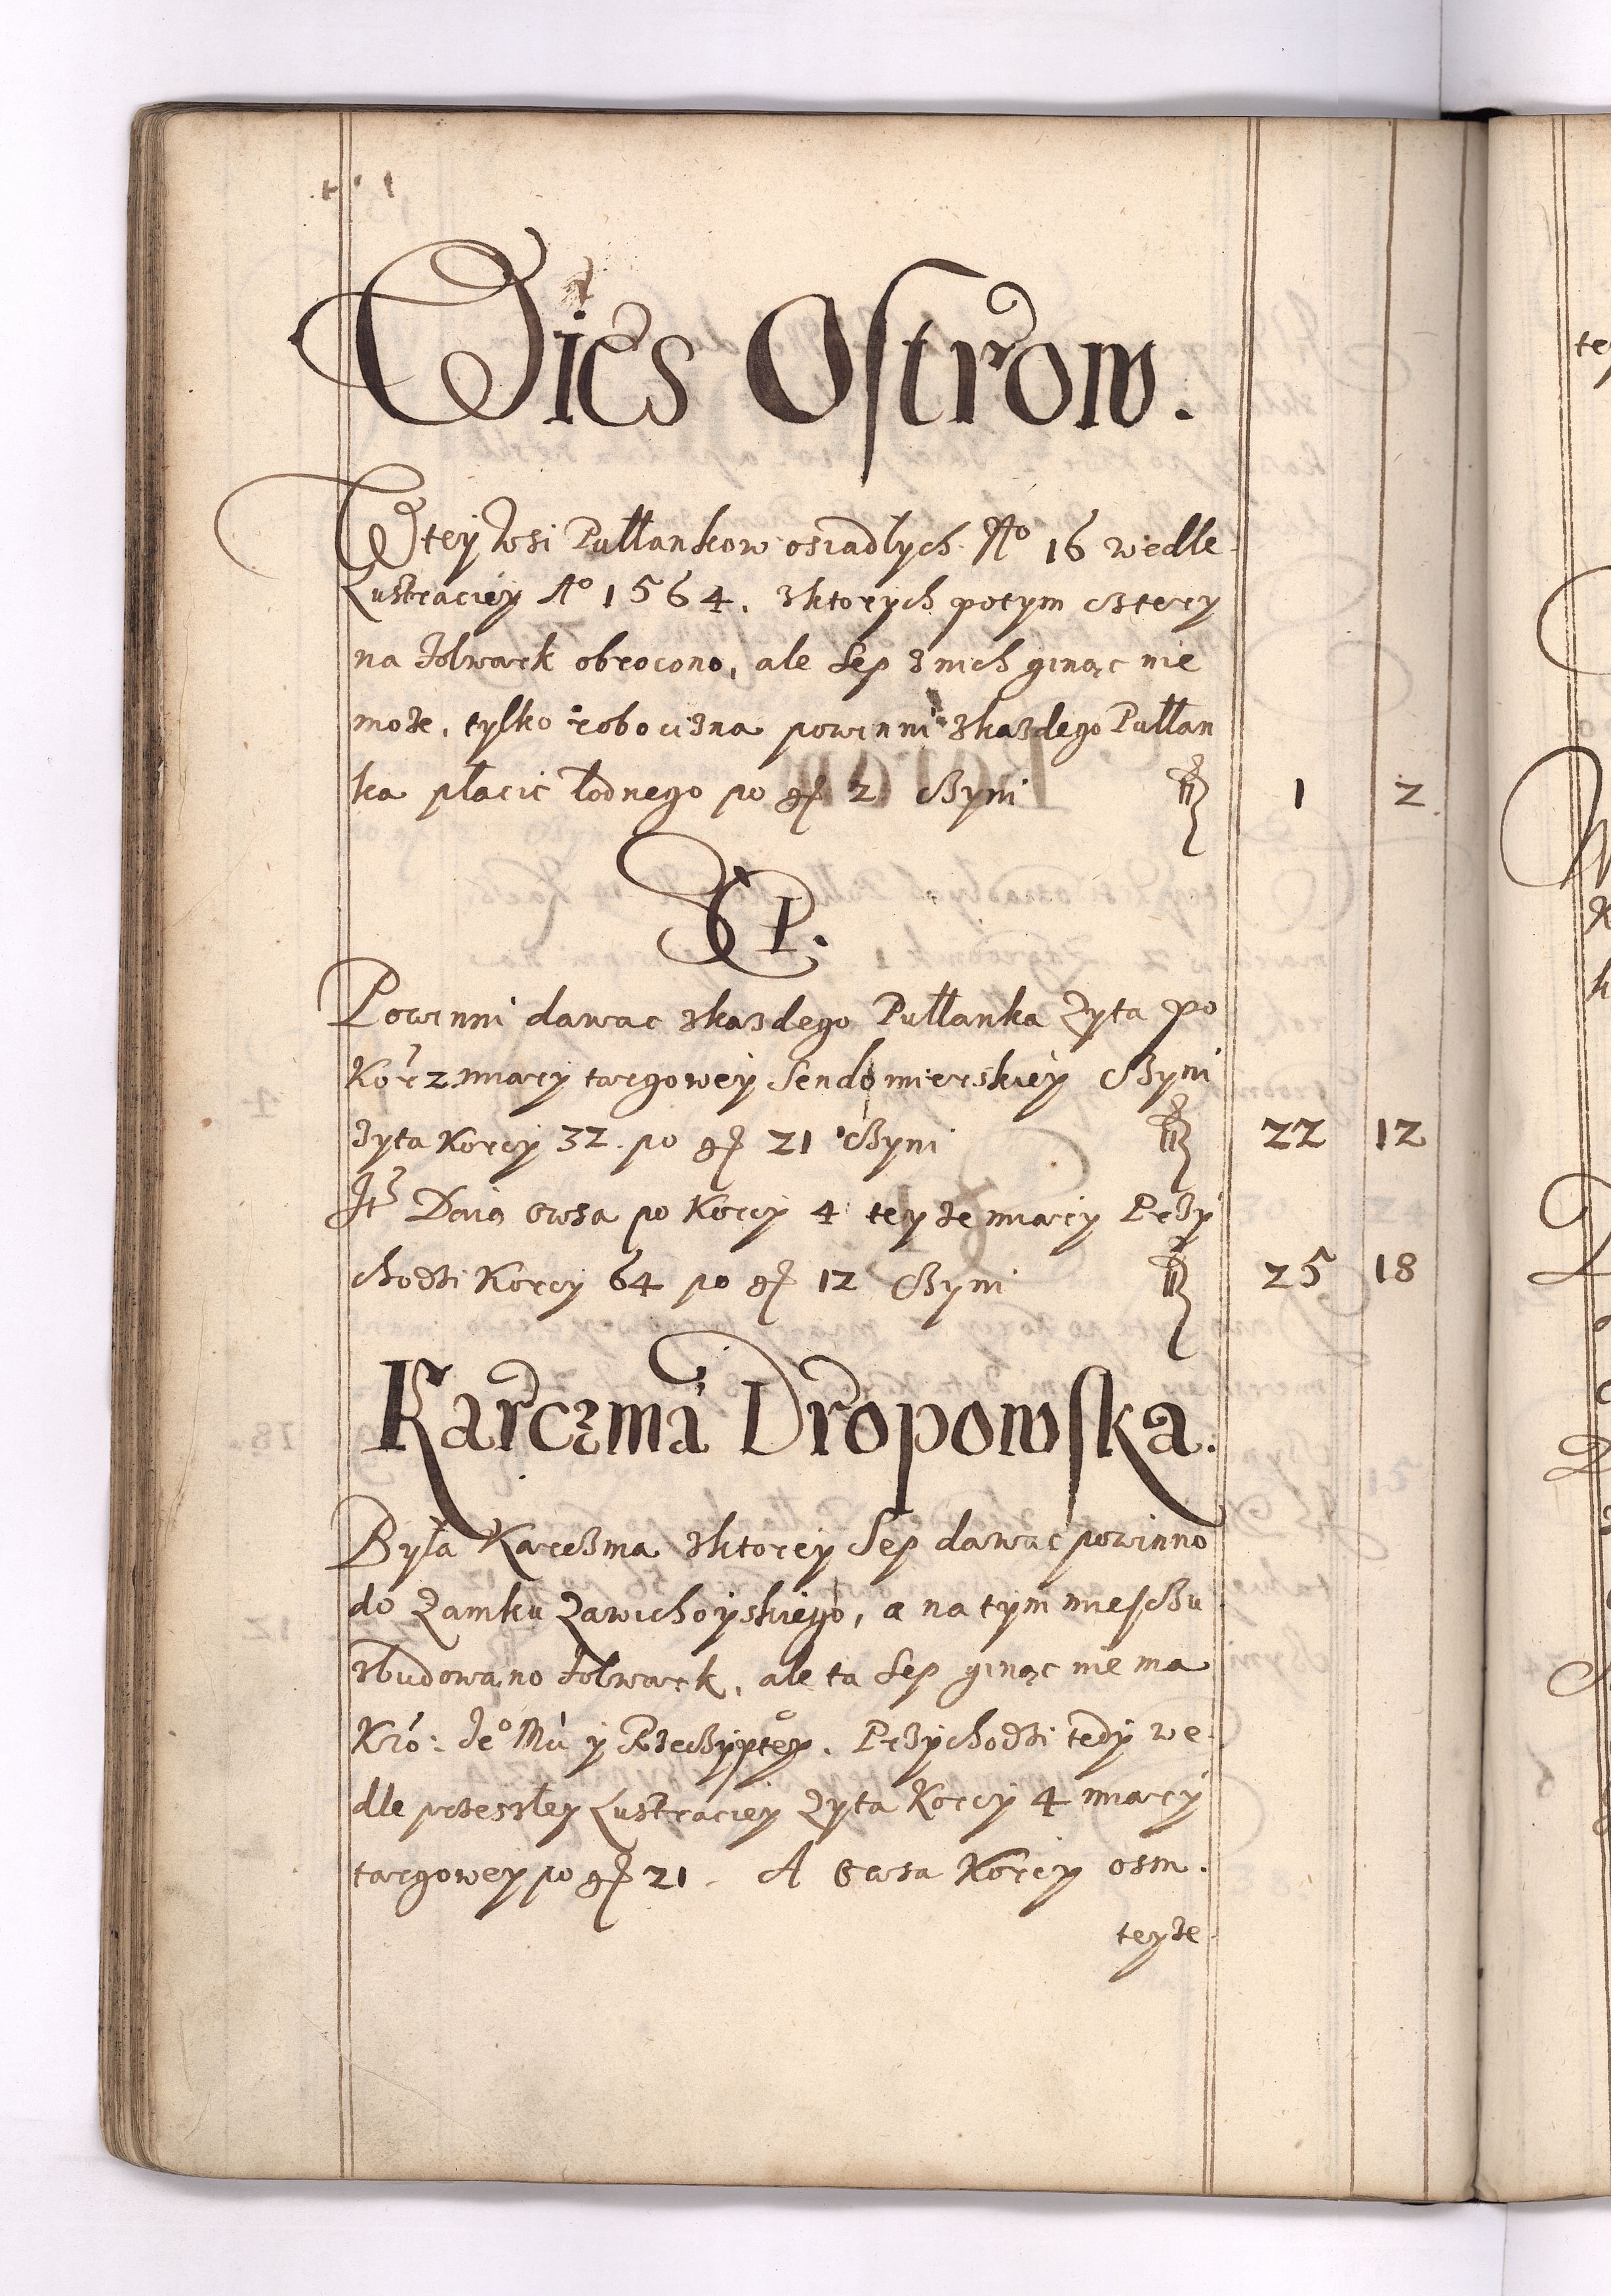 Wies Ostrow.
W tey Wsi Pułłankow osiadłych No 16 wedle
Lustraciey Ao 1564. z ktorych potym cztery
na folwark obrocono, ale Sep z nich ginąc nie
może, tylko robocizna powinni z kazdego Pułłan
ka płacic łodnego po gr 2 czyni fl 1 2
SEP.
Powinni dawac z kazdego Pułłanka Zyta po
Kor 2 miary targowey Sendomierskiey czyni
zyta Korcy 32. po gr 21 czyni fl 22 12
It Daią owsa po Korcy 4 tey że miary Przy
chodzi Korcy 64 po gr 12 czyni fl 25 18
Karczma Dropowska.
Była Karczma z ktorey Sep dawac powinno
do Zamku Zawichoyskiego, a na tym mieysczu
zbudowano folwark, ale ta Sep ginąc nie ma
Kro: Je° Mci y Rzeczyptey. Przychodzi tedy we
dle przeszłey Lustraciey Zyta Korcy 4 miary
targowey po gr 21. A Owsa Korcy osm.
teyże